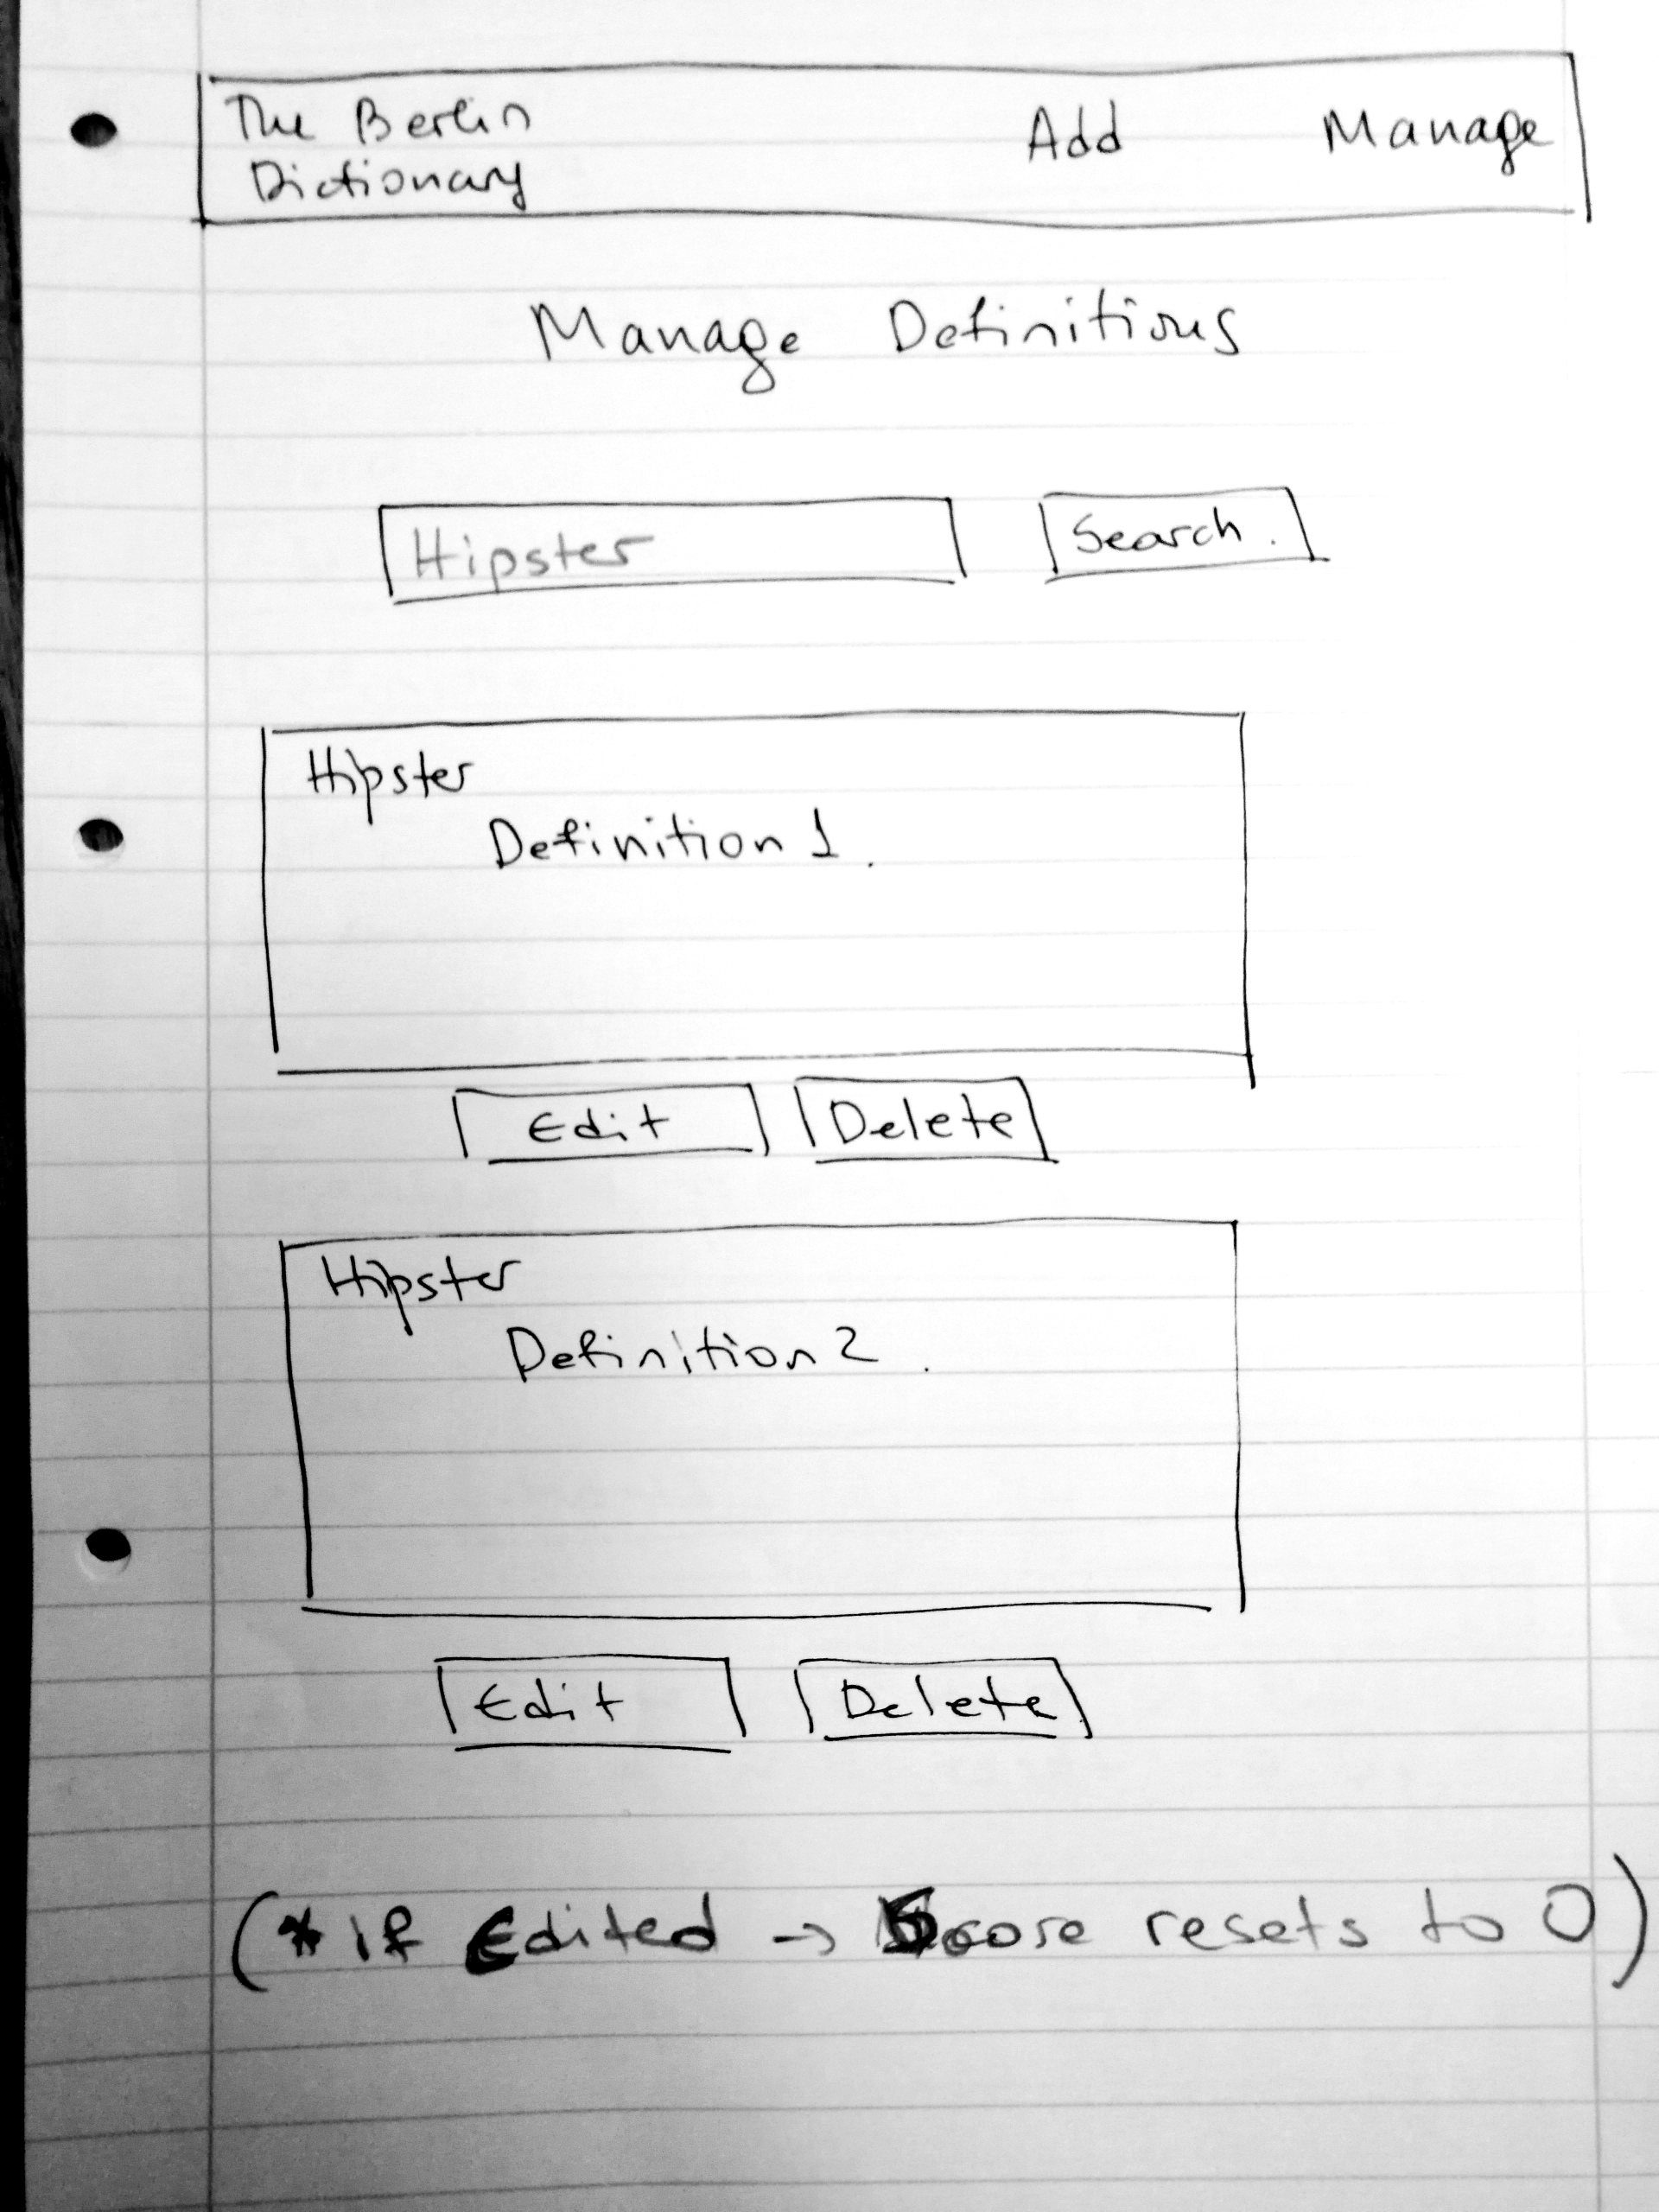 The Berlin
Dictionary
Add Manage
Manage Definitions
Hipster
Search.
Hipster
Definition 1.
Edit Delete
Hipster
Definition 2.
Edit Delete
(* if Edited → Score resets to 0)